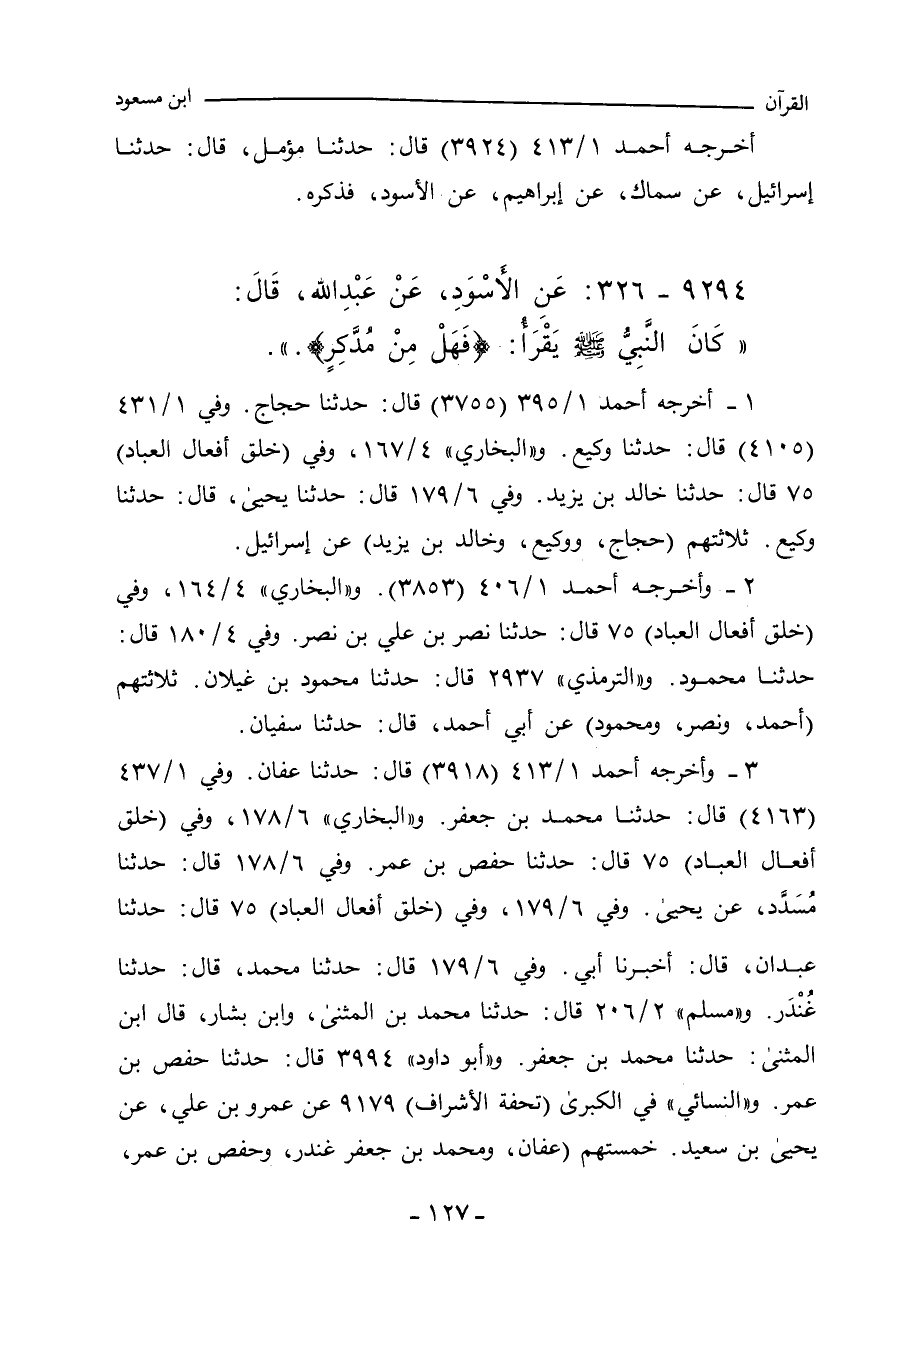 القرآن ــــــ ابن مسعود
أخرجه أحمد ٤١٣/١ (٣٩٢٤) قال: حدثنا مؤمل، قال: حدثنا
إسرائيل، عن سماك، عن إبراهيم، عن الأسود، فذكره.
٩٢٩٤ ـ ٣٢٦: عَنِ الأَسْوَدِ، عَنْ عَبْدِالله، قَالَ:
« كَانَ النَّبِيُّ ﷺ يَقْرَأُ: ﴿فَهَلْ مِنْ مُدَّكِرٍ﴾.».
١ ـ أخرجه أحمد ٣٩٥/١ (٣٧٥٥) قال: حدثنا حجاج. وفي ٤٣١/١
(٤١٠٥) قال: حدثنا وكيع. و«البخاري» ١٦٧/٤، وفي (خلق أفعال العباد)
٧٥ قال: حدثنا خالد بن يزيد. وفي ١٧٩/٦ قال: حدثنا يحيىٰ، قال: حدثنا
وكيع. ثلاثتهم (حجاج، ووكيع، وخالد بن يزيد) عن إسرائيل.
٢ ـ وأخرجه أحمد ٤٠٦/١ (٣٨٥٣). و«البخاري» ١٦٤/٤، وفي
(خلق أفعال العباد) ٧٥ قال: حدثنا نصر بن علي بن نصر. وفي ١٨٠/٤ قال:
حدثنا محمود. و«الترمذي» ٢٩٣٧ قال: حدثنا محمود بن غيلان. ثلاثتهم
(أحمد، ونصر، ومحمود) عن أبي أحمد، قال: حدثنا سفيان.
٣ ـ وأخرجه أحمد ٤١٣/١ (٣٩١٨) قال: حدثنا عفان. وفي ٤٣٧/١
(٤١٦٣) قال: حدثنا محمد بن جعفر. و«البخاري» ١٧٨/٦، وفي (خلق
أفعال العباد) ٧٥ قال: حدثنا حفص بن عمر. وفي ١٧٨/٦ قال: حدثنا
مُسَدَّد، عن يحيىٰ. وفي ١٧٩/٦، وفي (خلق أفعال العباد) ٧٥ قال: حدثنا
عبدان، قال: أخبرنا أبي. وفي ١٧٩/٦ قال: حدثنا محمد، قال: حدثنا
غُنْدَر. و«مسلم» ٢٠٦/٢ قال: حدثنا محمد بن المثنىٰ، وابن بشار، قال ابن
المثنىٰ: حدثنا محمد بن جعفر. و«أبو داود» ٣٩٩٤ قال: حدثنا حفص بن
عمر. و«النسائي» في الكبرىٰ (تحفة الأشراف) ٩١٧٩ عن عمرو بن علي، عن
يحيىٰ بن سعيد. خمستهم (عفان، ومحمد بن جعفر غندر، وحفص بن عمر،
ـ ١٢٧ ـ